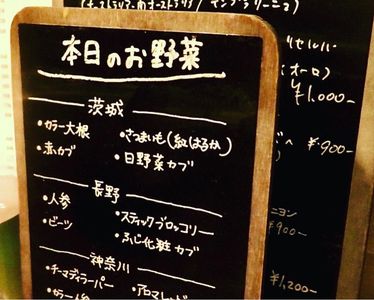 本日のお野菜
茨城
・カラー大根 ・さつまいも(紅はるか)
・赤カブ ・日野菜カブ
長野
・人参 ・スティックブロッコリー
・ビーツ ・ふじ化粧カブ
神奈川
・チーマディラーパー ・アロマレッド
・カラー人参
セルバ
(オーロ)
¥1,000-
¥900-
ニヨン
¥900-
¥1,200-